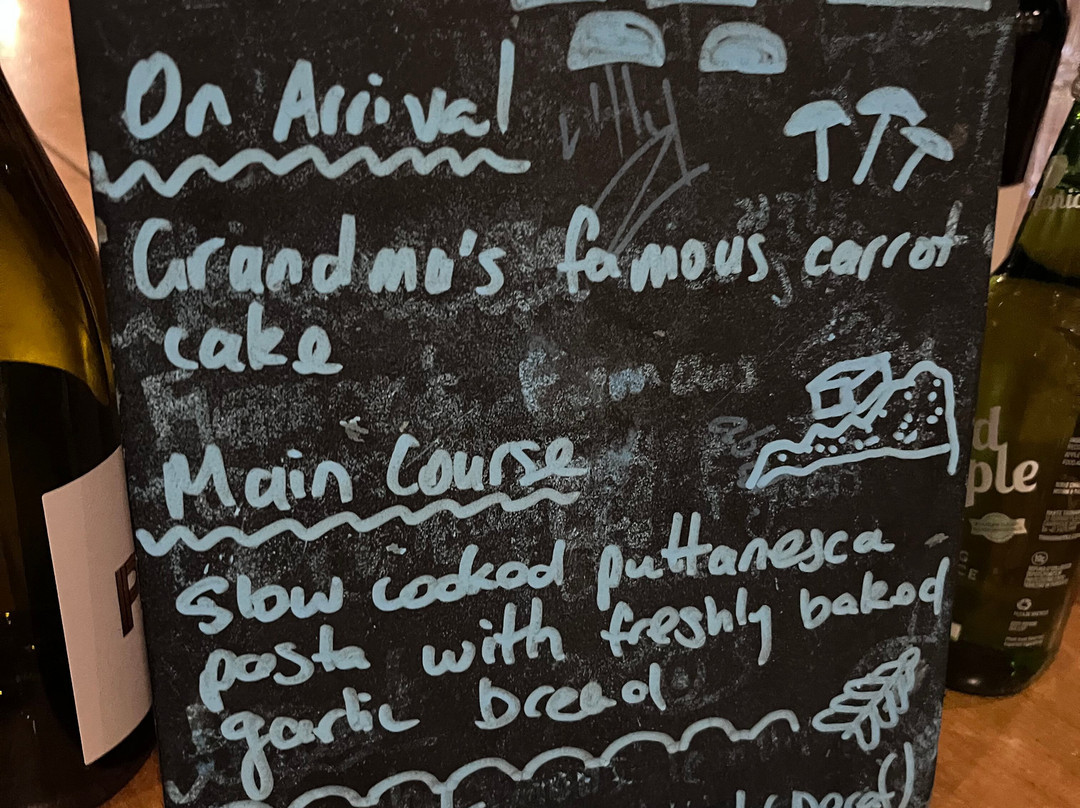 On Arrival
Grandma's famous carrot
cake
Main Course
Slow cooked puttanesca
pasta with freshly baked
garlic bread
d
ple
P